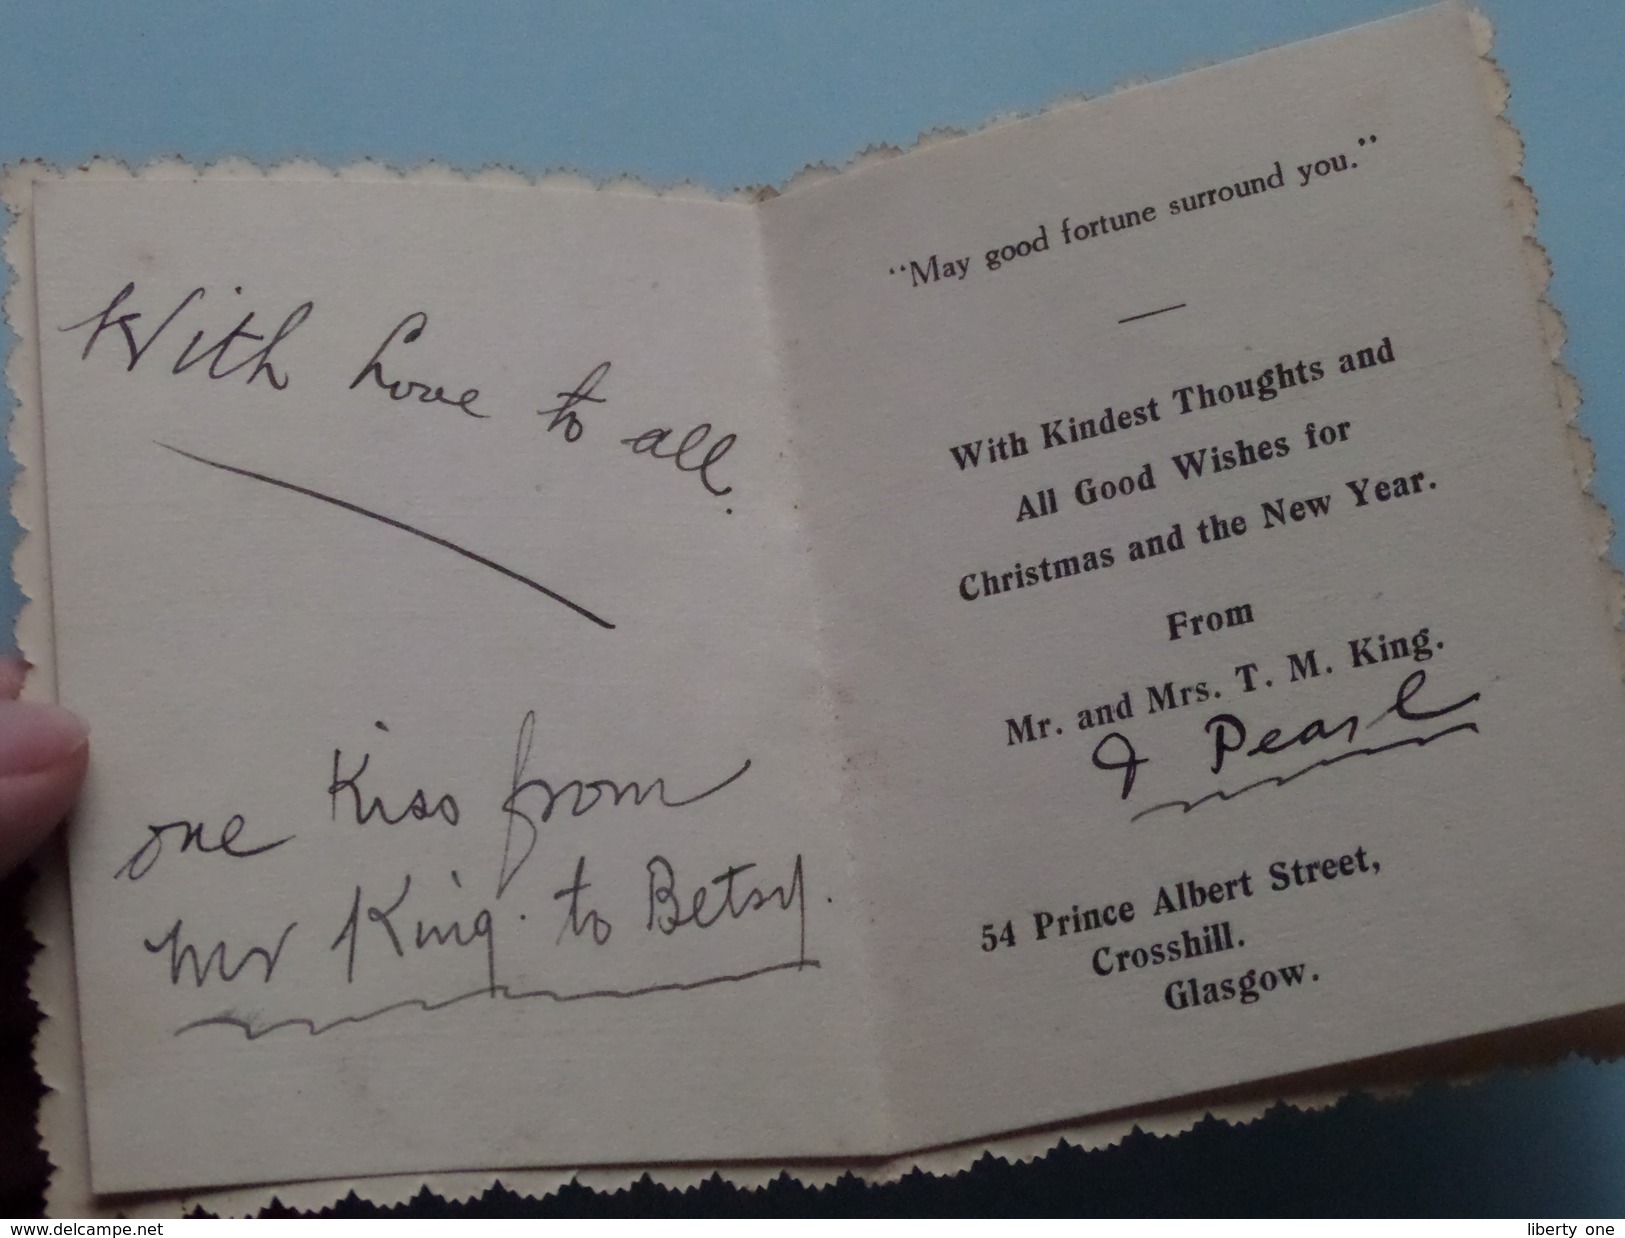 With Love to all.
one Kiss from
Mr King. to Betsy.
"May good fortune surround you."
With Kindest Thoughts and
All Good Wishes for
Christmas and the New Year.
From
Mr. and Mrs. T. M. King.
& Pearl
54 Prince Albert Street,
Crosshill.
Glasgow.
www.delcampe.net
liberty one